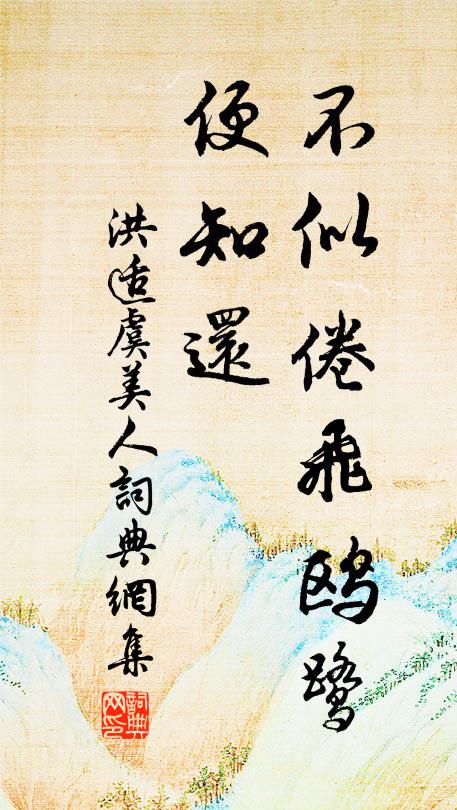 不似倦飛鷗鷺
便知還
洪适虞美人詞典網集
詞典
网印